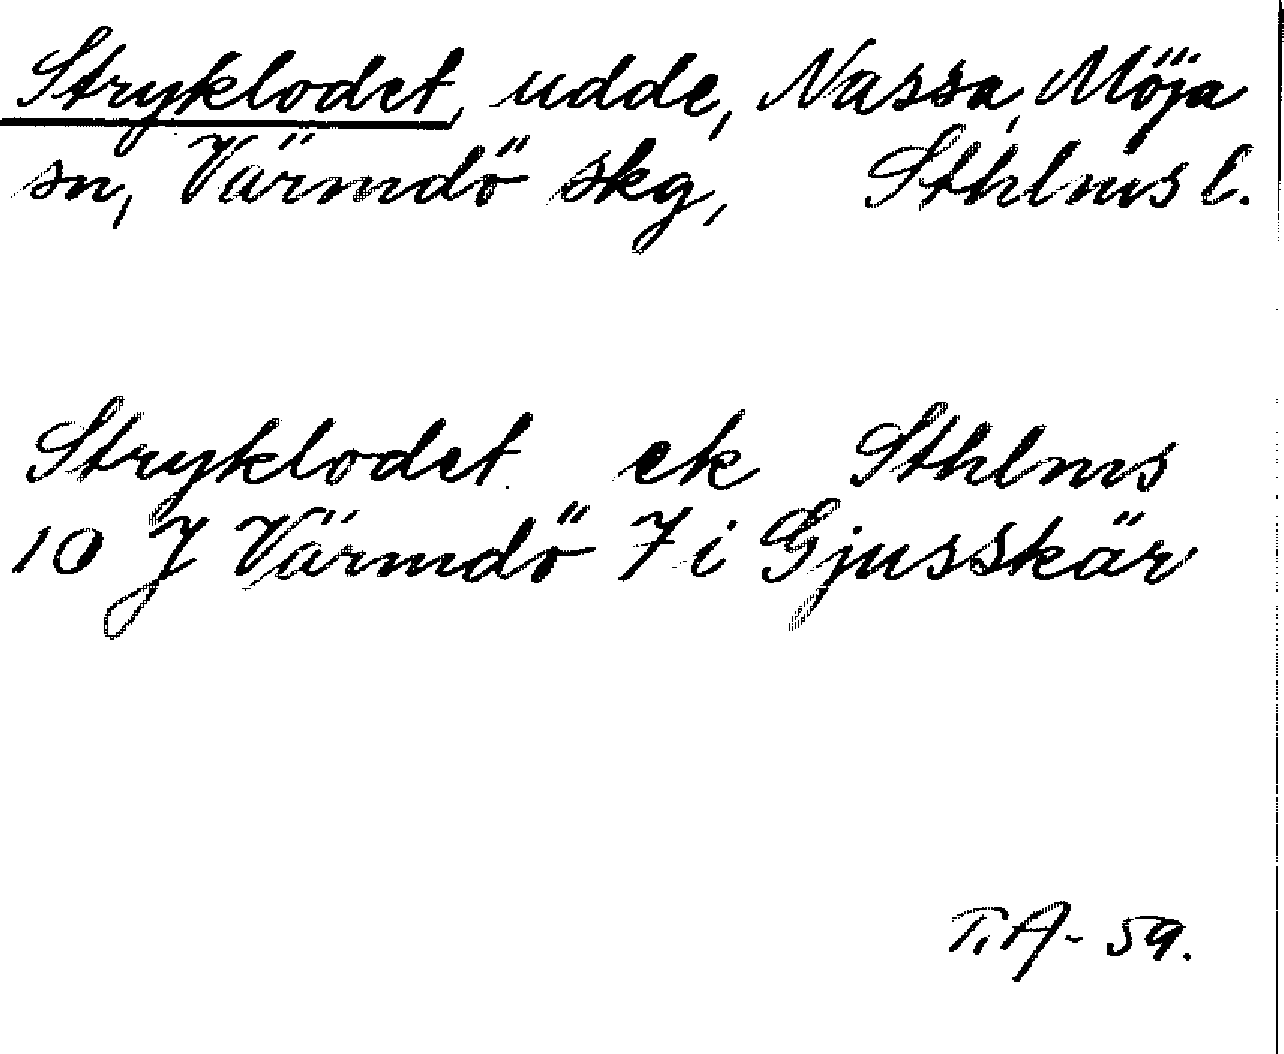 Stryklodet, udde, Nassa, Möja
sn, Värmdö skg, Sthlms l.
Stryklodet ek Sthlms
10 J Värmdö 7 i Gjusskär
T.A- 59.